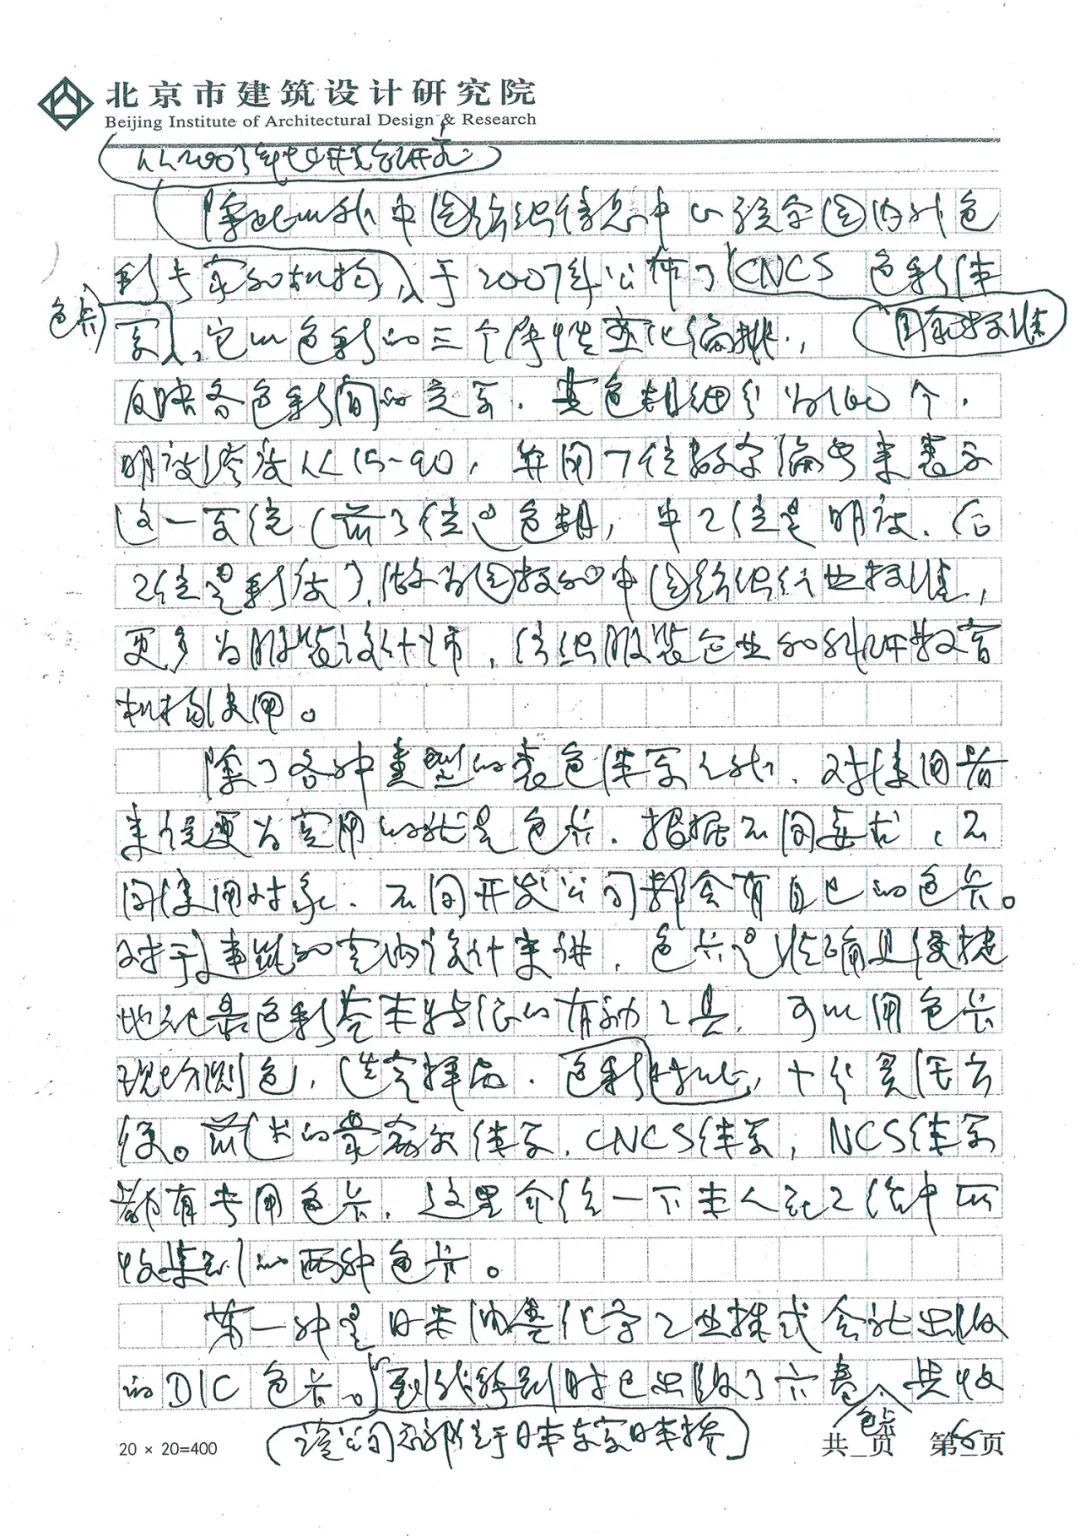 北京市建筑设计研究院
Beijing Institute of Architectural Design & Research
从2003年起开始研究
除此以外中国纺织信息中心联合国内外色
彩专家和机构，于2007年公布了CNCS色彩体
色卡
系，它以色彩的三个属性变化编排，
国家标准
反映各色彩间的关系，其色相细分为160个，
明度跨度从15-90，并用7位数字编号来表示
这一颜色（前3位是色相，中2位是明度，后
2位是彩度），做为国标和中国纺织行业标准，
更多为服装设计师，纺织服装企业和科研教育
机构使用。
除了各种类型的表色体系之外，对使用者
来说更为实用的就是色卡，根据不同要求，不
同使用对象，不同开发公司都会有自己的色卡。
对于建筑和室内设计来讲，色卡是准确且便捷
地记录色彩基本特征的有效工具，可以用色卡
现场测色，选定样品，色彩对比，十分灵活方
便。前述的蒙赛尔体系，CNCS体系，NCS体系
都有专用色卡，这里介绍一下本人在工作中所
收集到的两种色卡。
第一种是日本油墨化学工业株式会社出版
的DIC色卡。到　时已出版了六卷　共收
色卡
（该公司　部位于日本东京日本桥）
20 × 20=400
共 页 第6页